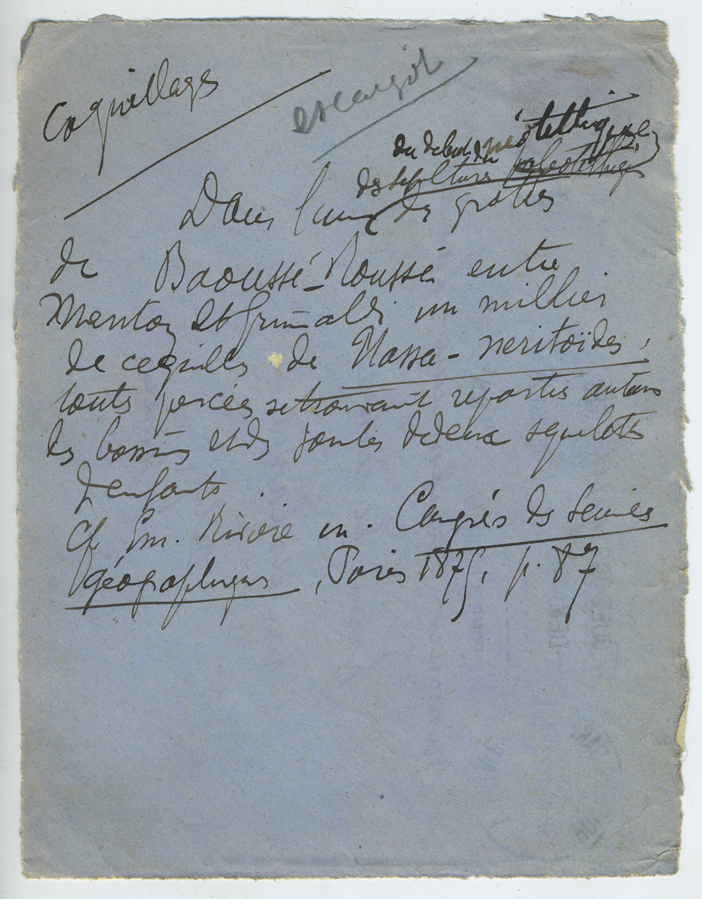 Coquillages
escargot
du début du néolithique
des sépultures
Dans l'une des grottes
de Baoussé-Roussé entre
Menton et Grimaldi un millier
de coquilles de Nassa-neritoïdes,
toutes percées se trouvaient réparties autour
des bassins et des
de deux squelettes
d'enfants.
Cf Em. Rivière in. Congrès des Sciences
géographiques, Paris 1875, p. 87